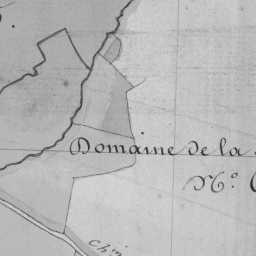 Domaine de la
N.º
Ch.in